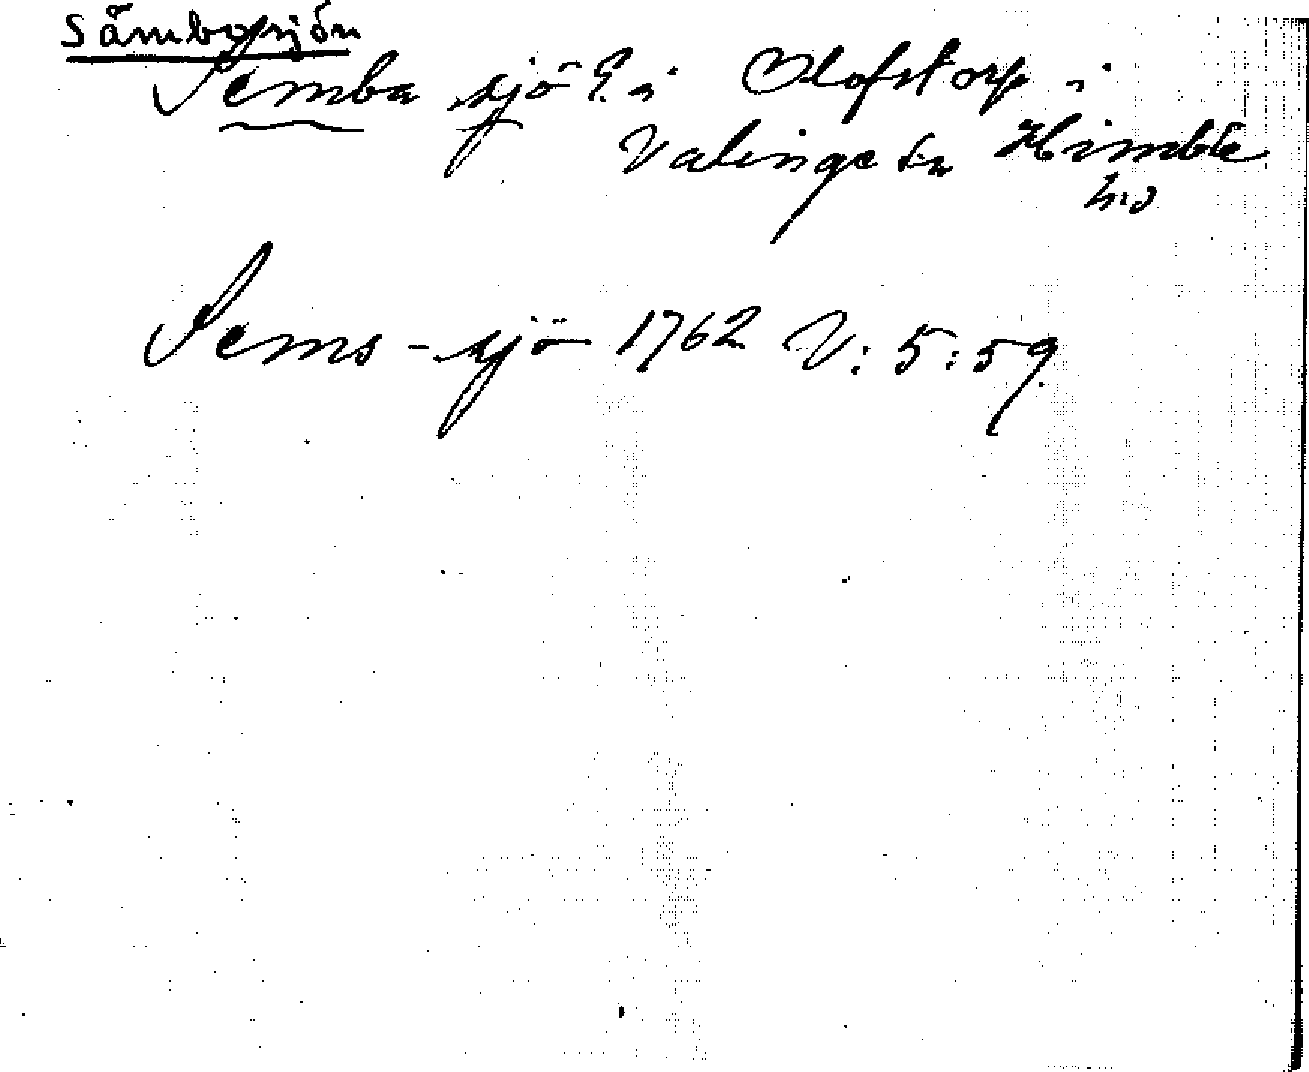 Sämbosjön
Semba sjö i Olofstorp i
Valinge sn Himble
hd
Sems-sjö 1762 V:5:59.